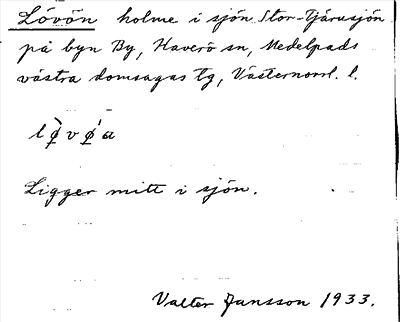 Lövön holme i sjön Stor-Tjärusjön
på byn By, Haverö sn, Medelpads
västra domsagas tg, Västernorrl. l.
lø̀vǿa
Ligger mitt i sjön.
Valter Jansson 1933.